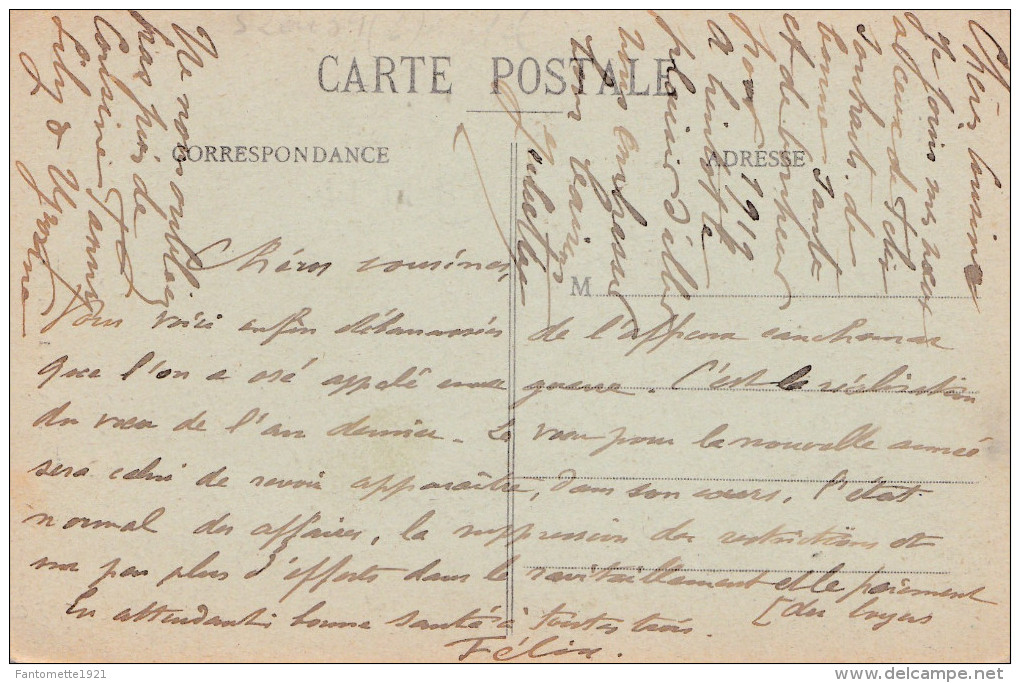 CARTE POSTALE
CORRESPONDANCE
ADRESSE
M
Chères cousines,
Vous voici enfin débarrassées de l'affreux cauchemar
que l'on a osé appelé guerre. C'est la réalisation
du vœu de l'an dernier. Le vœu pour la nouvelle année
sera celui de revoir apparaître, dans son cours, l'état
normal des affaires, la suppression des restrictions et
un peu plus d'efforts dans le ravitaillement et le paiement
[des loyers
En attendant bonne santé à toutes trois.
Félix.
Chères Cousines
Je joins mes vœux
à ceux de Félix
souhaits de
bonne santé
et de bonheur
pour 1919
à bientôt le
plaisir d'aller
vous embrasser
Juliette
Ne nous oubliez
pas près de
Cousine Fanny
Lily &
Fantometto1921
delcampe.net